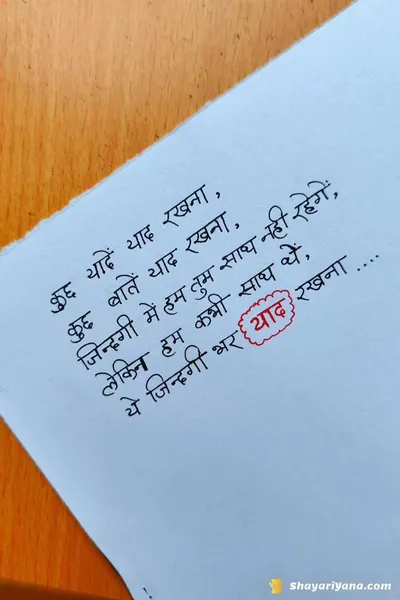 कुछ यादें याद रखना,
कुछ बातें याद रखना,
जिन्दगी में हम तुम साथ नही रहेगें,
लेकिन हम कभी साथ थें,
ये जिन्दगी भर याद रखना ....
Shayariyana.com